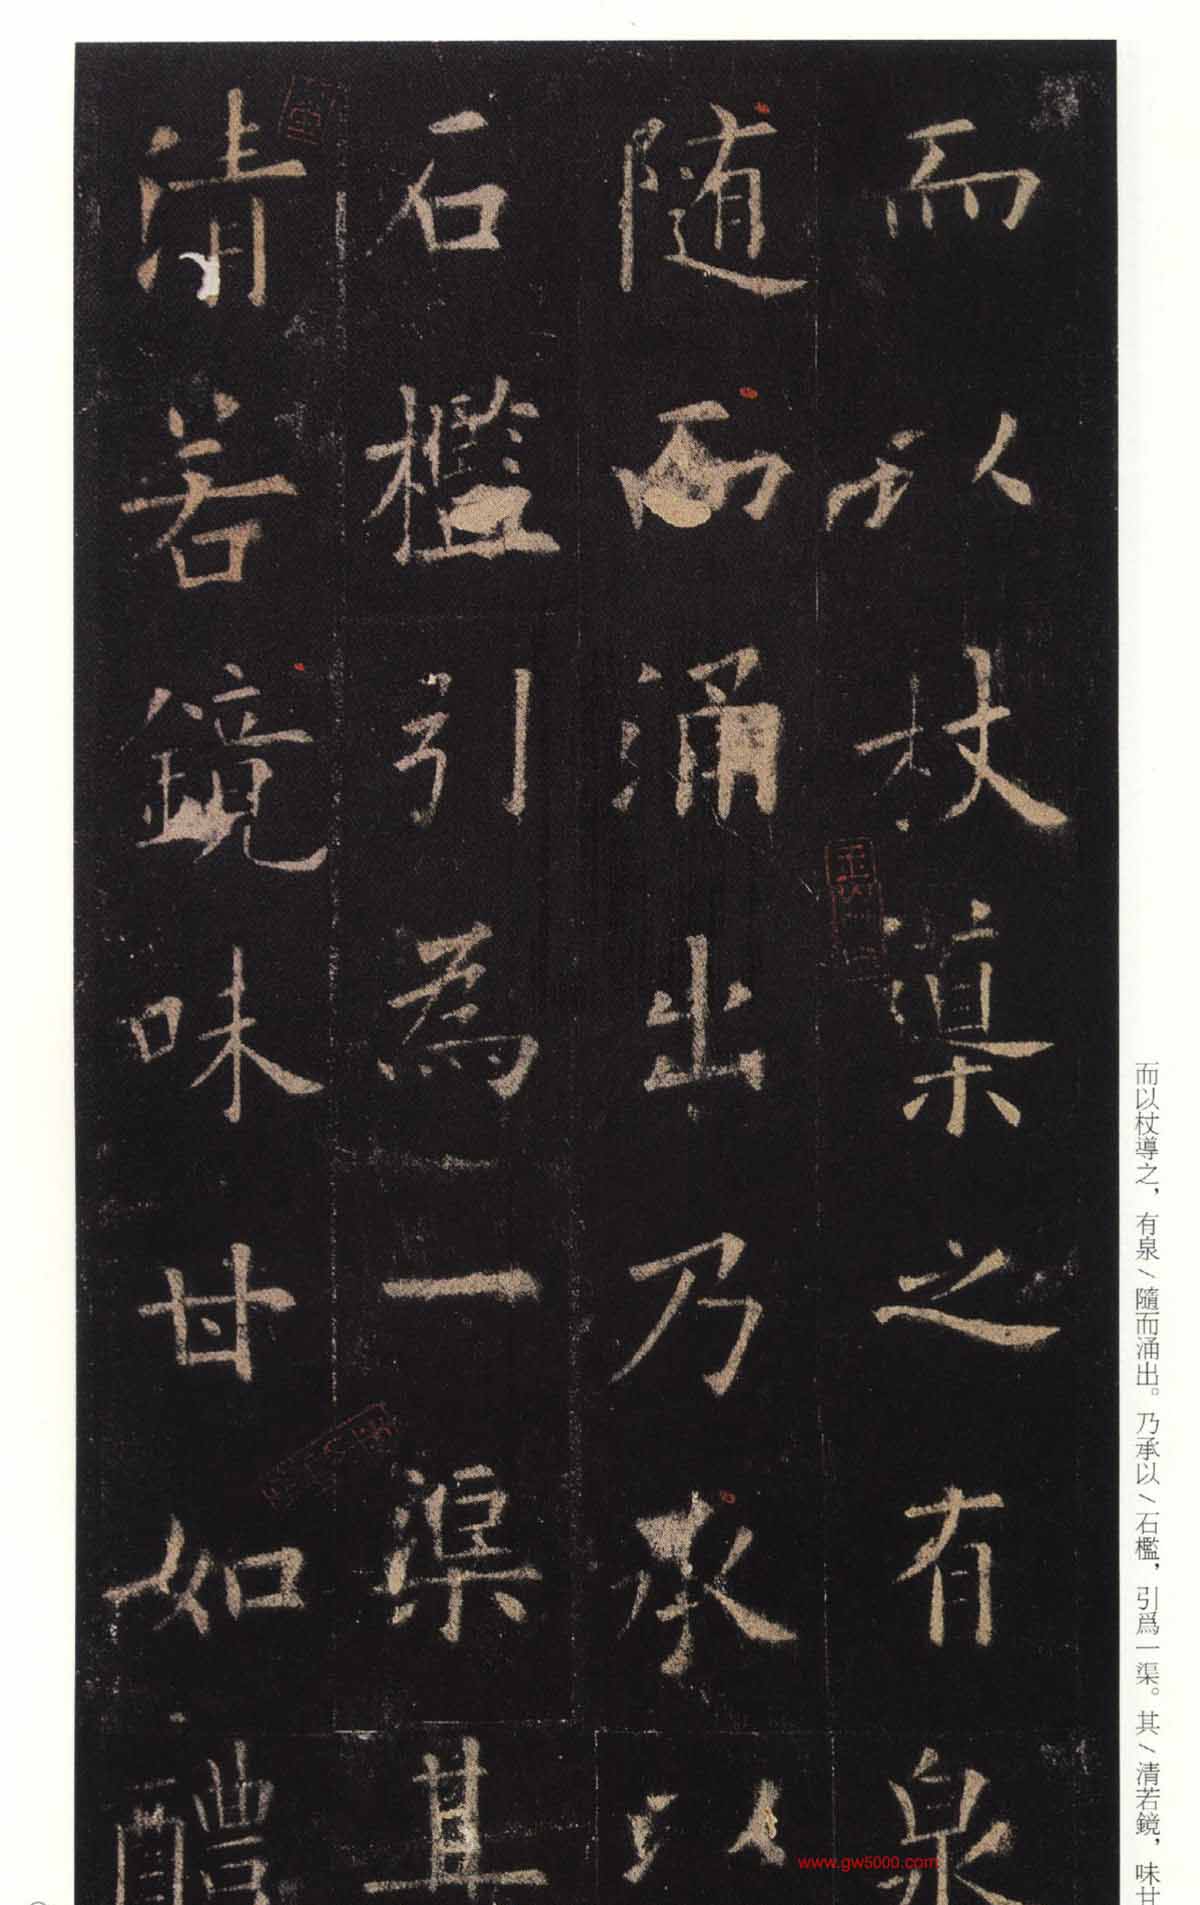 而以杖導之，有泉/隨而涌出。乃承以/石檻，引爲一渠。其/清若鏡，味甘
而以杖渠之有泉
随而涌出乃承以
石檻引為一渠其
清若鏡味甘如醴
www.gw5000.com